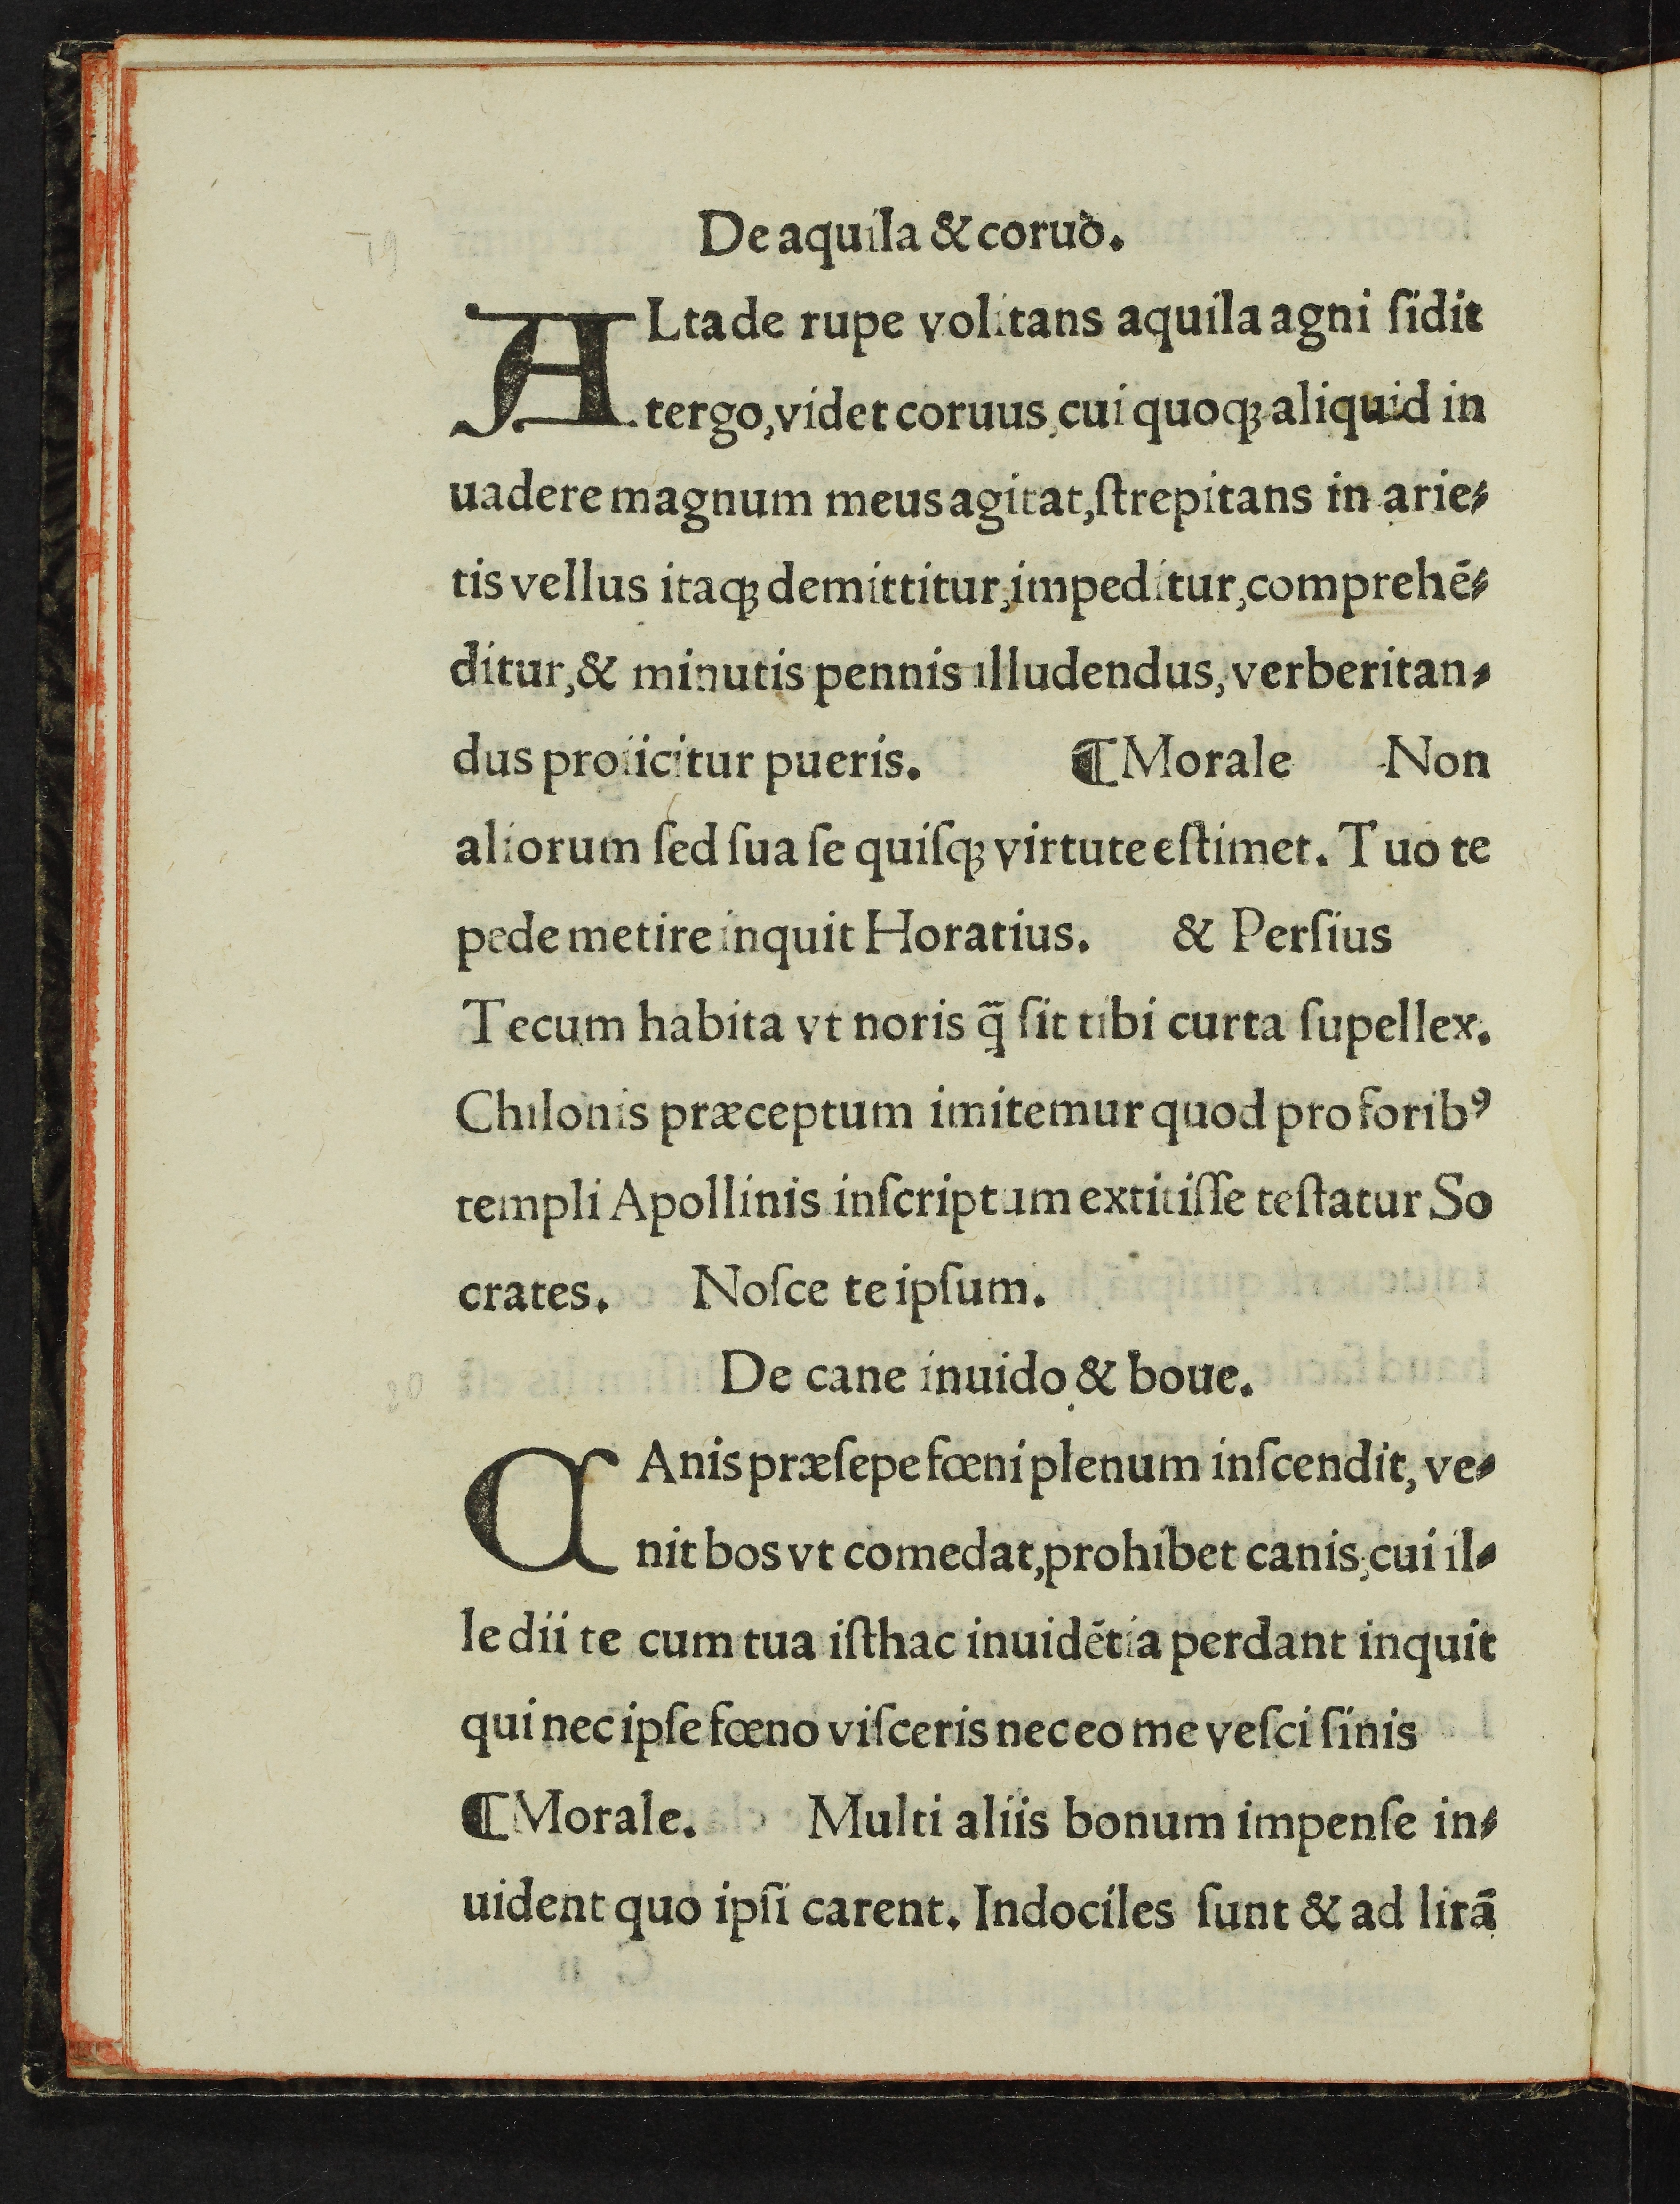 De aquila & coruo.
19
ALta de rupe volitans aquila agni ſidit
tergo, videt coruus, cui quoqꝫ aliquid in
uadere magnum meus agitat, ſtrepitans in arie⸗
tis vellus itaqꝫ demittitur, impeditur, comprehē⸗
ditur, & minutis pennis illudendus, verberitan⸗
dus proiicitur pueris. ¶ Morale Non
aliorum ſed ſua ſe quiſqꝫ virtute eſtimet. Tuo te
pede metire inquit Horatius. & Perſius
Tecum habita vt noris q̄ ſit tibi curta ſupellex.
Chilonis præceptum imitemur quod pro foribꝰ
templi Apollinis inſcriptum extitiſſe teſtatur So
crates. Noſce te ipſum.
De cane inuido & boue.
20
CAnis præſepe fœni plenum inſcendit, ve⸗
nit bos vt comedat, prohibet canis, cui il⸗
le dii te cum tua iſthac inuidētia perdant inquit
qui nec ipſe fœno viſceris nec eo me veſci ſinis
¶ Morale. Multi aliis bonum impenſe in⸗
uident quo ipſi carent. Indociles ſunt & ad lirā